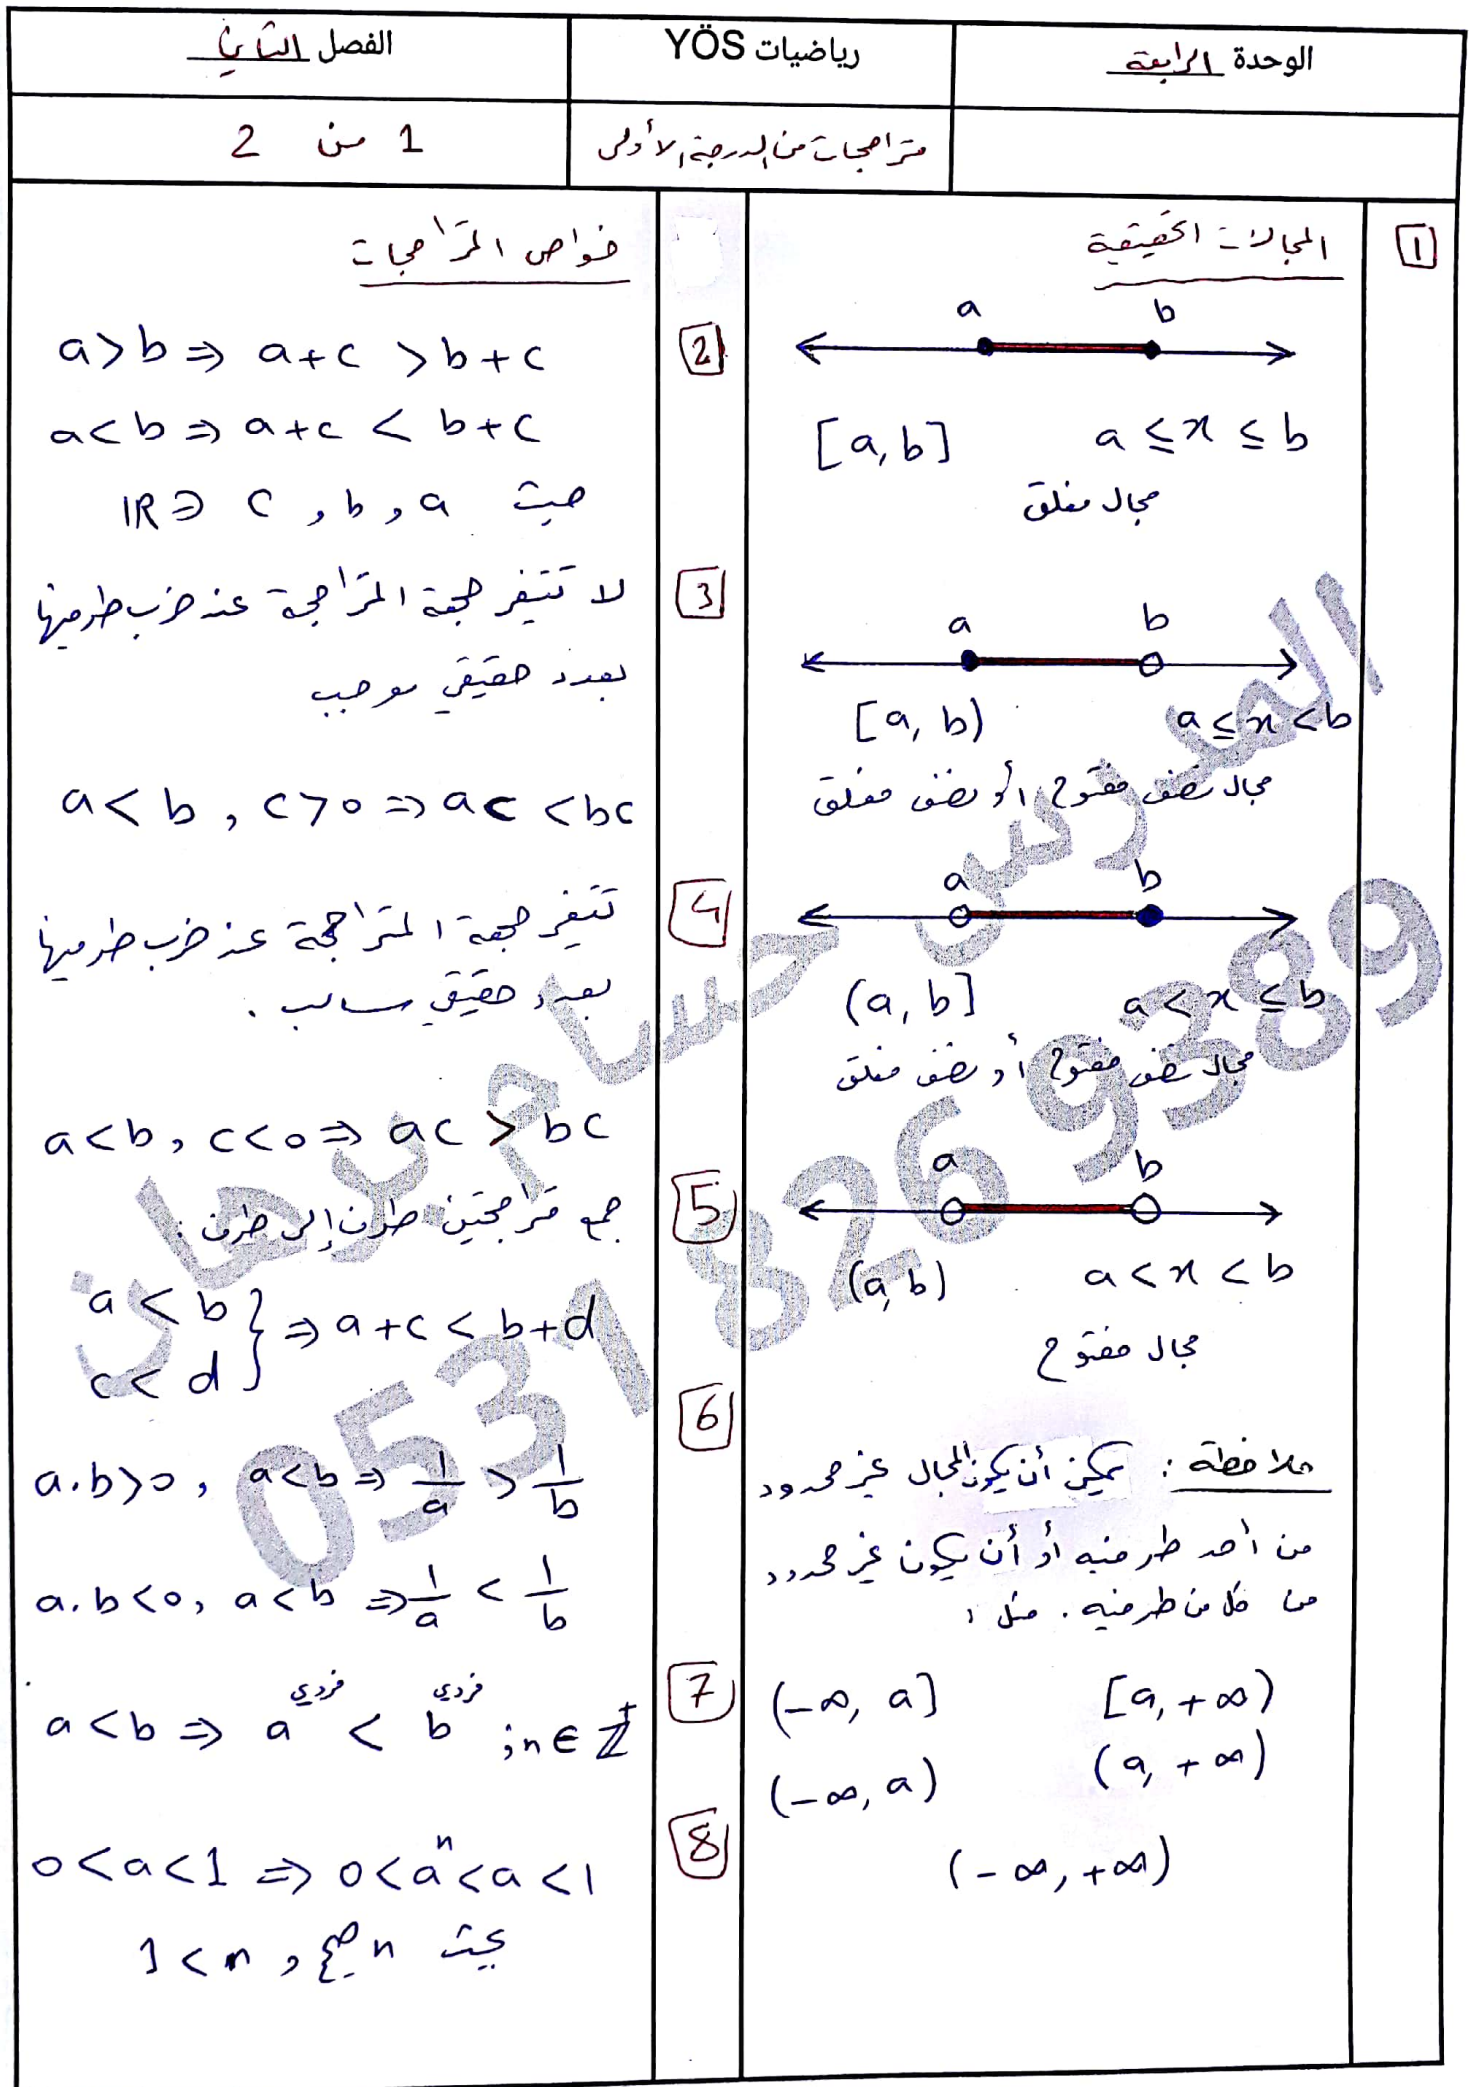 الوحدة الرابعة
رياضيات YÖS
الفصل الثاني
متراجحات من الدرجة الأولى
1 من 2
1 المجالات الحقيقية
a b
[a, b] a ≤ x ≤ b
مجال مغلق
a b
[a, b) a ≤ x < b
مجال نصف مفتوح أو نصف مغلق
a b
(a, b] a < x ≤ b
مجال نصف مفتوح أو نصف مغلق
a b
(a, b) a < x < b
مجال مفتوح
ملاحظة : يمكن أن يكون المجال غير محدود
من أحد طرفيه أو أن يكون غير محدود
من كل من طرفيه . مثل :
(-∞, a] [a, +∞)
(-∞, a) (a, +∞)
(-∞, +∞)
خواص المتراجحات
2 a > b ⇒ a + c > b + c
a < b ⇒ a + c < b + c
حيث a , b , c ∈ IR
3 لا تتغير جهة المتراجحة عند ضرب طرفيها
بعدد حقيقي موجب
a < b , c > 0 ⇒ ac < bc
4 تتغير جهة المتراجحة عند ضرب طرفيها
بعدد حقيقي سالب .
a < b , c < 0 ⇒ ac > bc
5 جمع متراجحتين طرف إلى طرف :
a < b
c < d } ⇒ a + c < b + d
6 a.b > 0 , a < b ⇒ 1/a > 1/b
a.b < 0 , a < b ⇒ 1/a < 1/b
7 a < b ⇒ a^فردي < b^فردي ; n ∈ Z⁺
8 0 < a < 1 ⇒ 0 < aⁿ < a < 1
بحيث n صحيح , 1 < n
المدرس حسام برهان
0531 826 9389